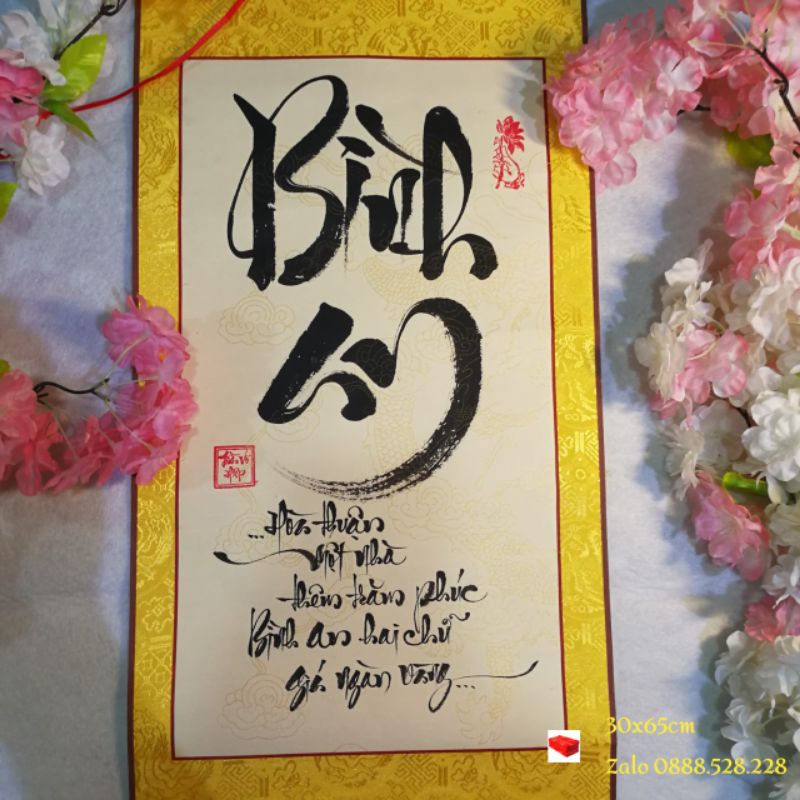 Bình
An
...Hòa thuận
một nhà
thêm trăm phúc
Bình an hai chữ
giá ngàn vàng...
30x65cm
Zalo 0888.528.228